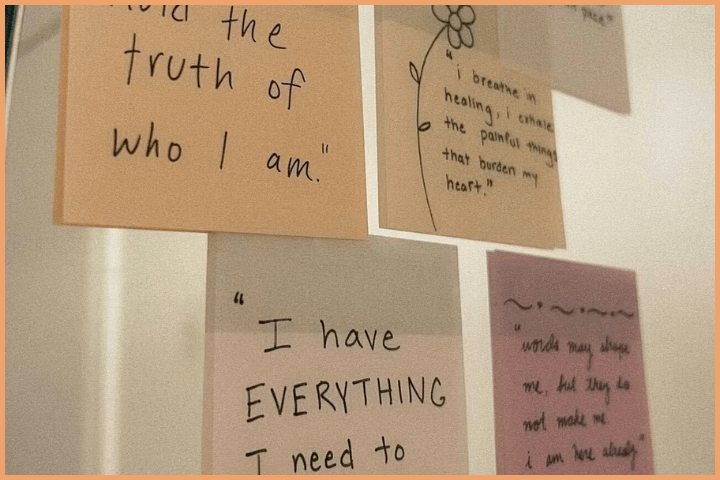 the
truth of
who I am."
"i breathe in
healing, i exhale
the painful things
that burden my
heart."
"I have
EVERYTHING
I need to
"words may shape
me, but they do
not make me.
i am here already."